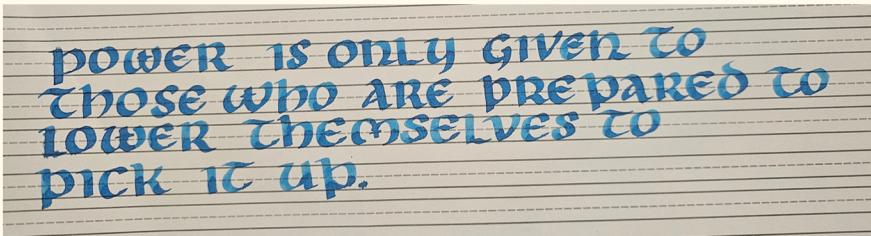 POWER IS ONLY GIVEN TO
THOSE WHO ARE PREPARED TO
LOWER THEMSELVES TO
PICK IT UP.